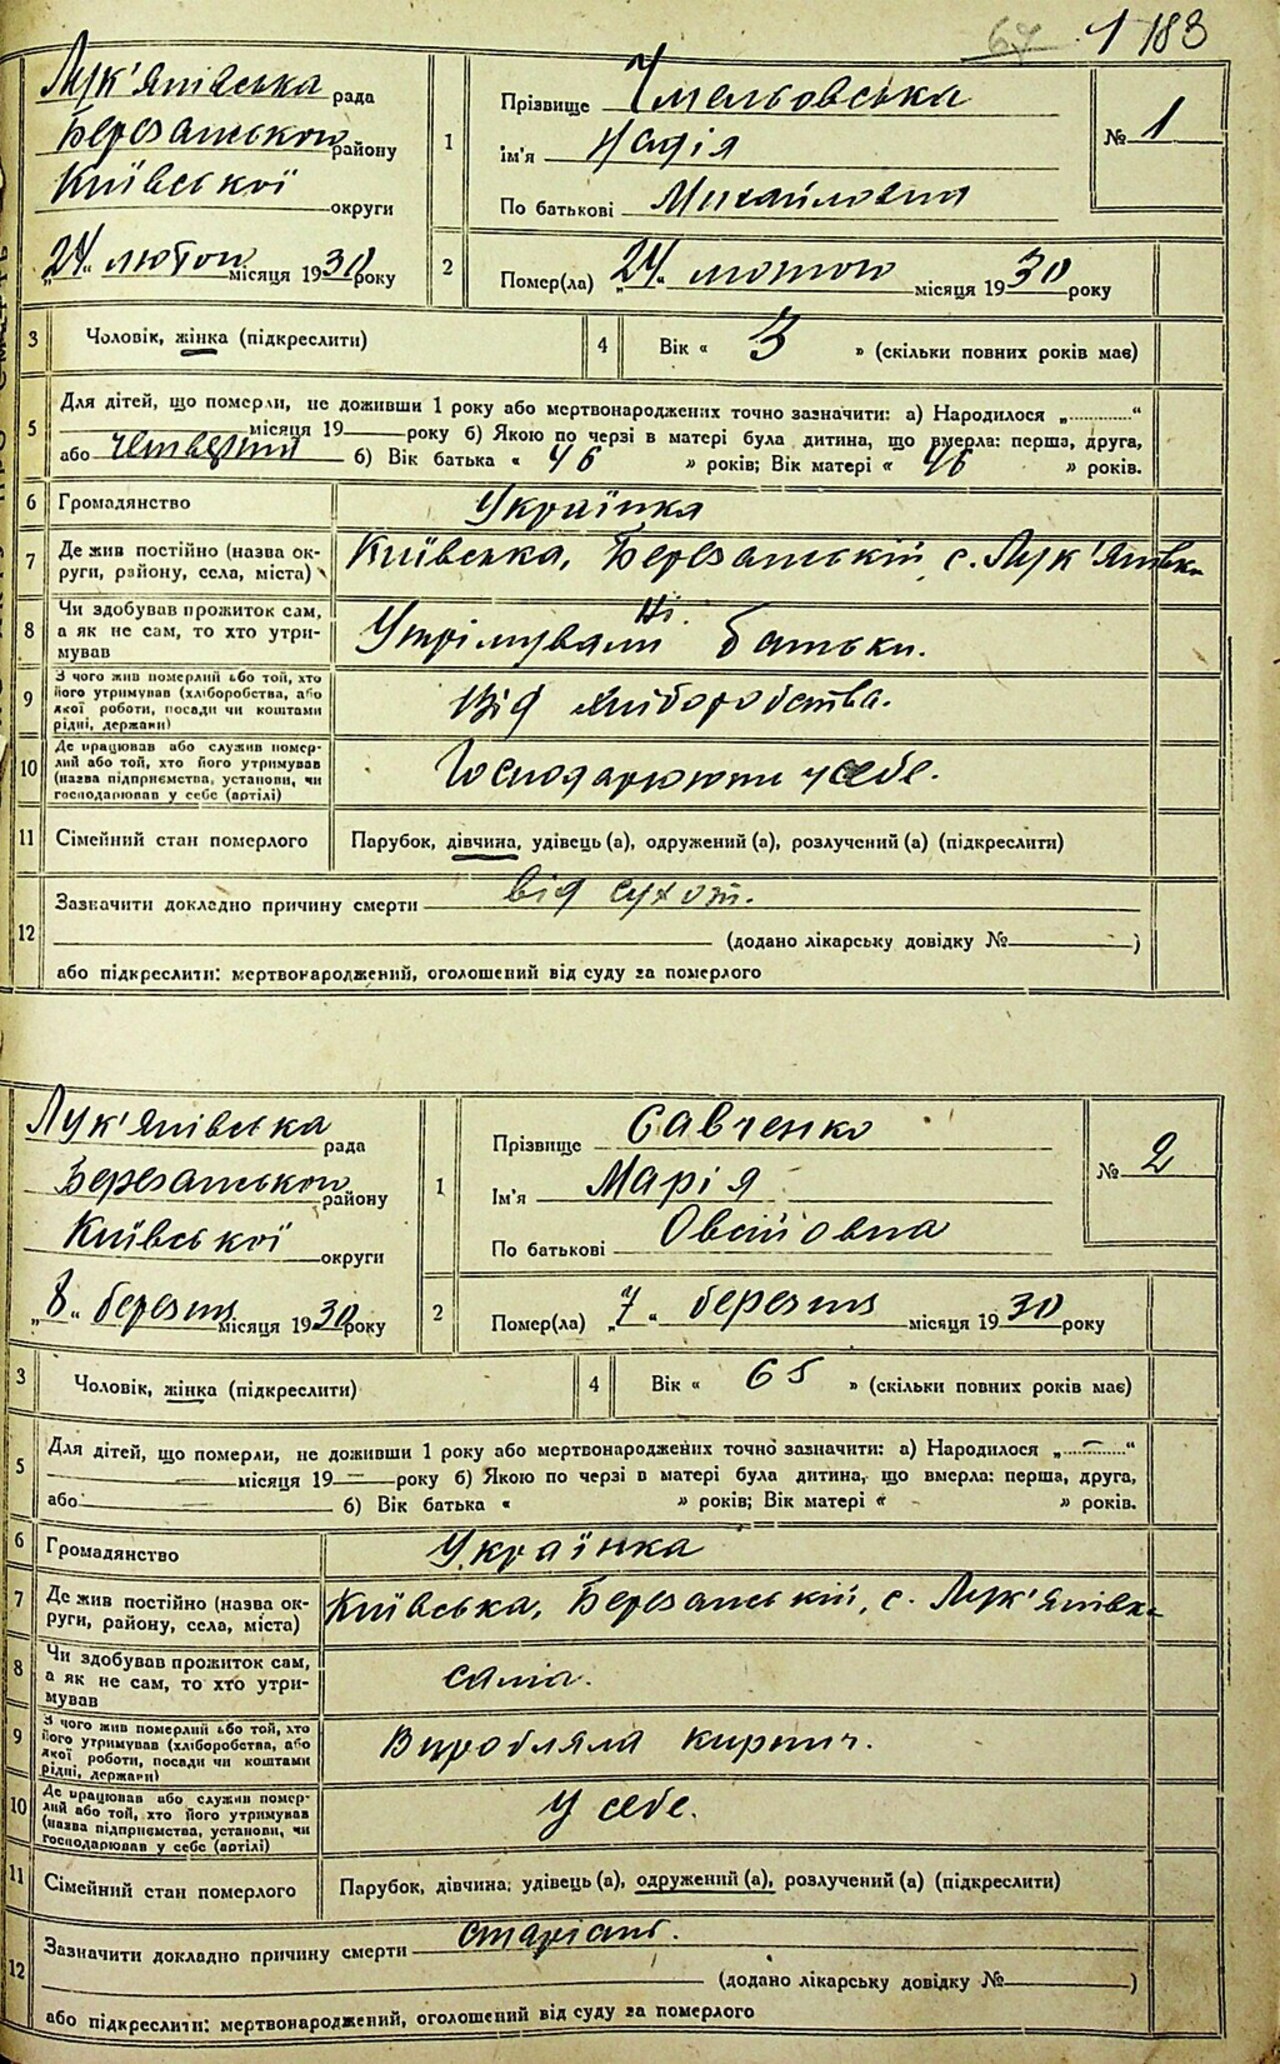 67 1 183
Лук'янівська рада
Березанського району
Київської округи
„24“ лютого місяця 1930 року
1
Прізвище Чмельовська
ім'я Надія
По батькові Михайлівна
№ 1
2
Помер(ла) „24“ лютого місяця 1930 року
3 Чоловік, жінка (підкреслити)
4 Вік « 3 » (скільки повних років має)
5 Для дітей, що померли, не доживши 1 року або мертвонароджених точно зазначити: а) Народилося „............“
місяця 19 року б) Якою по черзі в матері була дитина, що вмерла: перша, друга,
або четверта б) Вік батька « 46 » років; Вік матері « 46 » років.
6 Громадянство Українка
7 Де жив постійно (назва ок-
руги, району, села, міста) Київська, Березанській, с. Лук'янівка
8 Чи здобував прожиток сам,
а як не сам, то хто утри-
мував
Ні.
Утрімували батьки.
9 З чого жив померлий або той, хто
його утримував (хліборобства, або
якої роботи, посади чи коштами
рідні, держави)
Від хліборобства.
10 Де працював або служив помер-
лий або той, хто його утримував
(назва підприємства, установи, чи
господарював у себе (артілі)
Господарюють у себе.
11 Сімейний стан померлого Парубок, дівчина, удівець (а), одружений (а), розлучений (а) (підкреслити)
12 Зазначити докладно причину смерти від сухот.
(додано лікарську довідку № )
або підкреслити: мертвонароджений, оголошений від суду за померлого
Лук'янівська рада
Березанського району
Київської округи
„8“ березня місяця 1930 року
1
Прізвище Савченко
Ім'я Марія
По батькові Овсійовна
№ 2
2
Помер(ла) „7“ березня місяця 1930 року
3 Чоловік, жінка (підкреслити)
4 Вік « 65 » (скільки повних років має)
5 Для дітей, що померли, не доживши 1 року або мертвонароджених точно зазначити: а) Народилося „............“
місяця 19 — року б) Якою по черзі в матері була дитина, що вмерла: перша, друга,
або б) Вік батька « » років; Вік матері « » років.
6 Громадянство Українка
7 Де жив постійно (назва ок-
руги, району, села, міста) Київська, Березанській, с. Лук'янівка
8 Чи здобував прожиток сам,
а як не сам, то хто утри-
мував
сама.
9 З чого жив померлий або той, хто
його утримував (хліборобства, або
якої роботи, посади чи коштами
рідні, держави)
Виробляла кирпич.
10 Де працював або служив помер-
лий або той, хто його утримував
(назва підприємства, установи, чи
господарював у себе (артілі)
У себе.
11 Сімейний стан померлого Парубок, дівчина; удівець (а), одружений (а), розлучений (а) (підкреслити)
12 Зазначити докладно причину смерти старість.
(додано лікарську довідку № )
або підкреслити: мертвонароджений, оголошений від суду за померлого